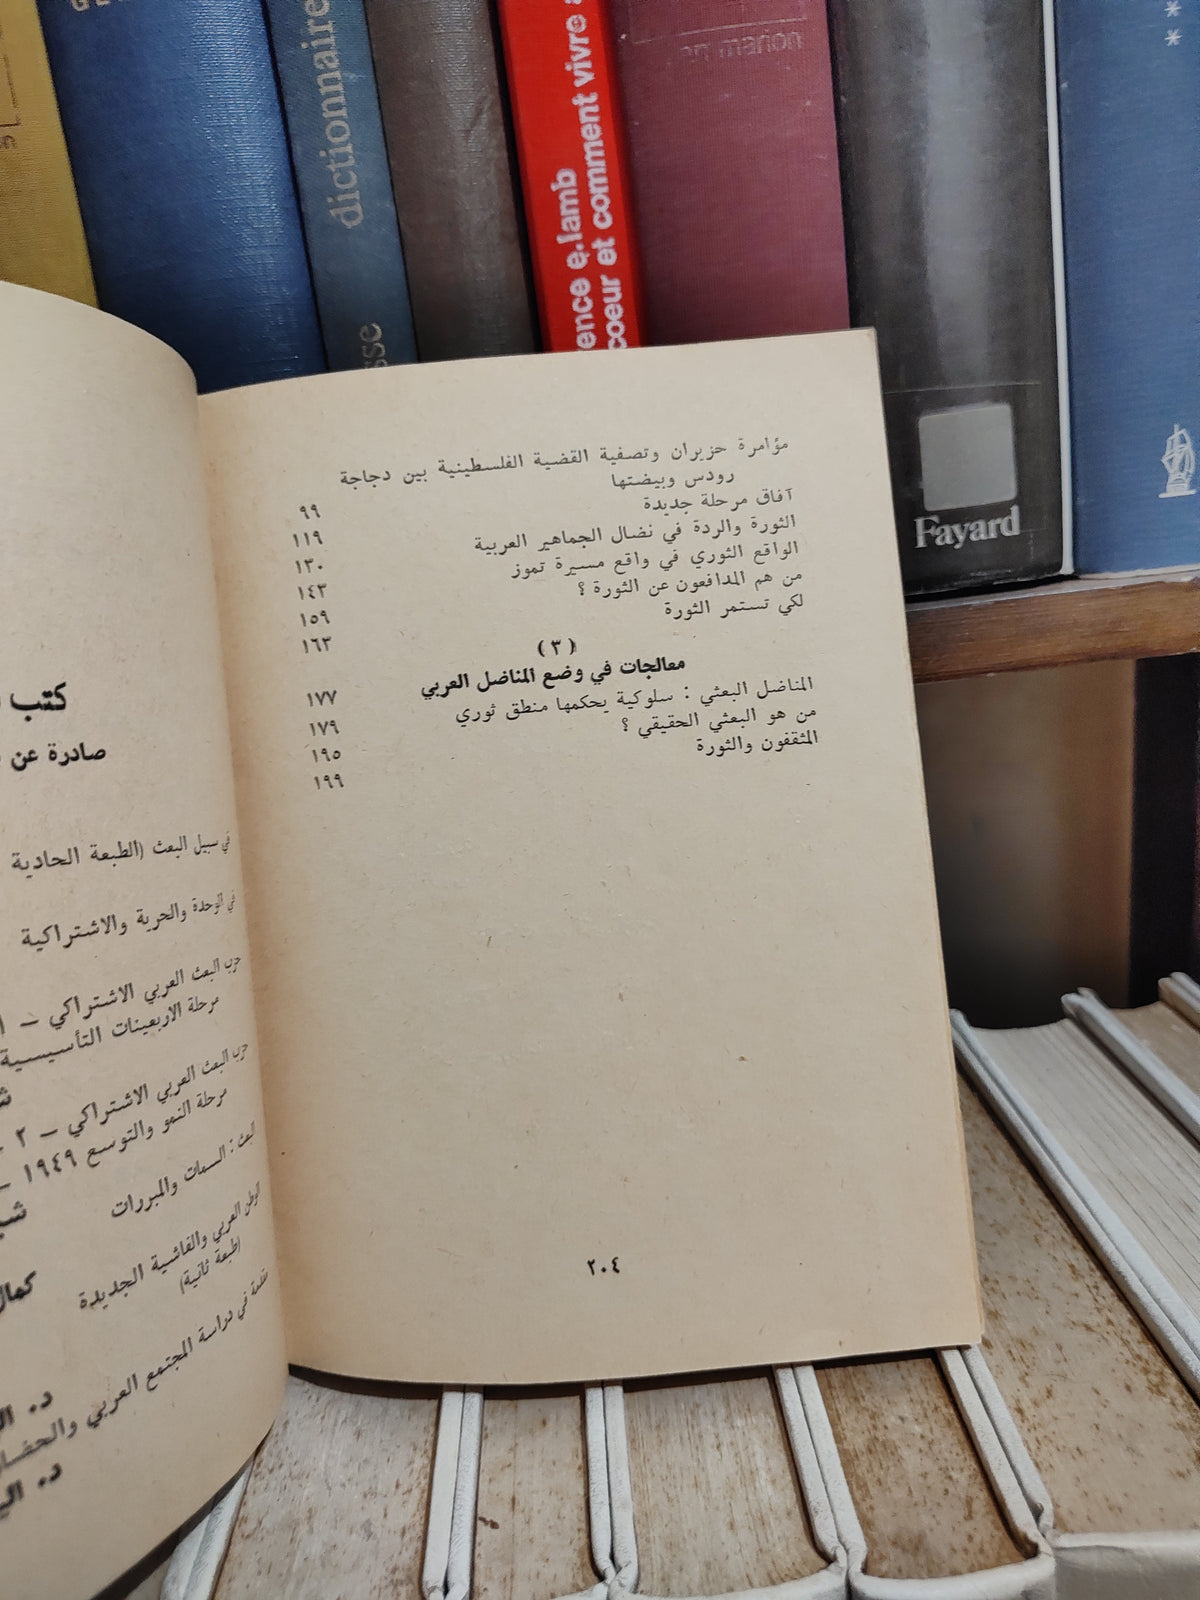 dictionnaire
sse
ence e.lamb
coeur et comment vivre
en manon
Fayard
* *
مؤامرة حزيران وتصفية القضية الفلسطينية بين دجاجة
رودس وبيضتها ٩٩
آفاق مرحلة جديدة ١١٩
الثورة والردة في نضال الجماهير العربية ١٣٠
الواقع الثوري في واقع مسيرة تموز ١٤٣
من هم المدافعون عن الثورة ؟ ١٥٩
لكي تستمر الثورة ١٦٣
(٣)
معالجات في وضع المناضل العربي ١٧٧
المناضل البعثي : سلوكية يحكمها منطق ثوري ١٧٩
من هو البعثي الحقيقي ؟ ١٩٥
المثقفون والثورة ١٩٩
٢٠٤
كتب
صادرة عن
في سبيل البعث (الطبعة الحادية
في الوحدة والحرية والاشتراكية
حزب البعث العربي الاشتراكي — ١
مرحلة الاربعينات التأسيسية
حزب البعث العربي الاشتراكي — ٢
مرحلة النمو والتوسع ١٩٤٩ —
البعث : السمات والمبررات
الوطن العربي والفاشية الجديدة
(طبعة ثانية)
كمال
مقدمة في دراسة المجتمع العربي والحضار
د.
د.